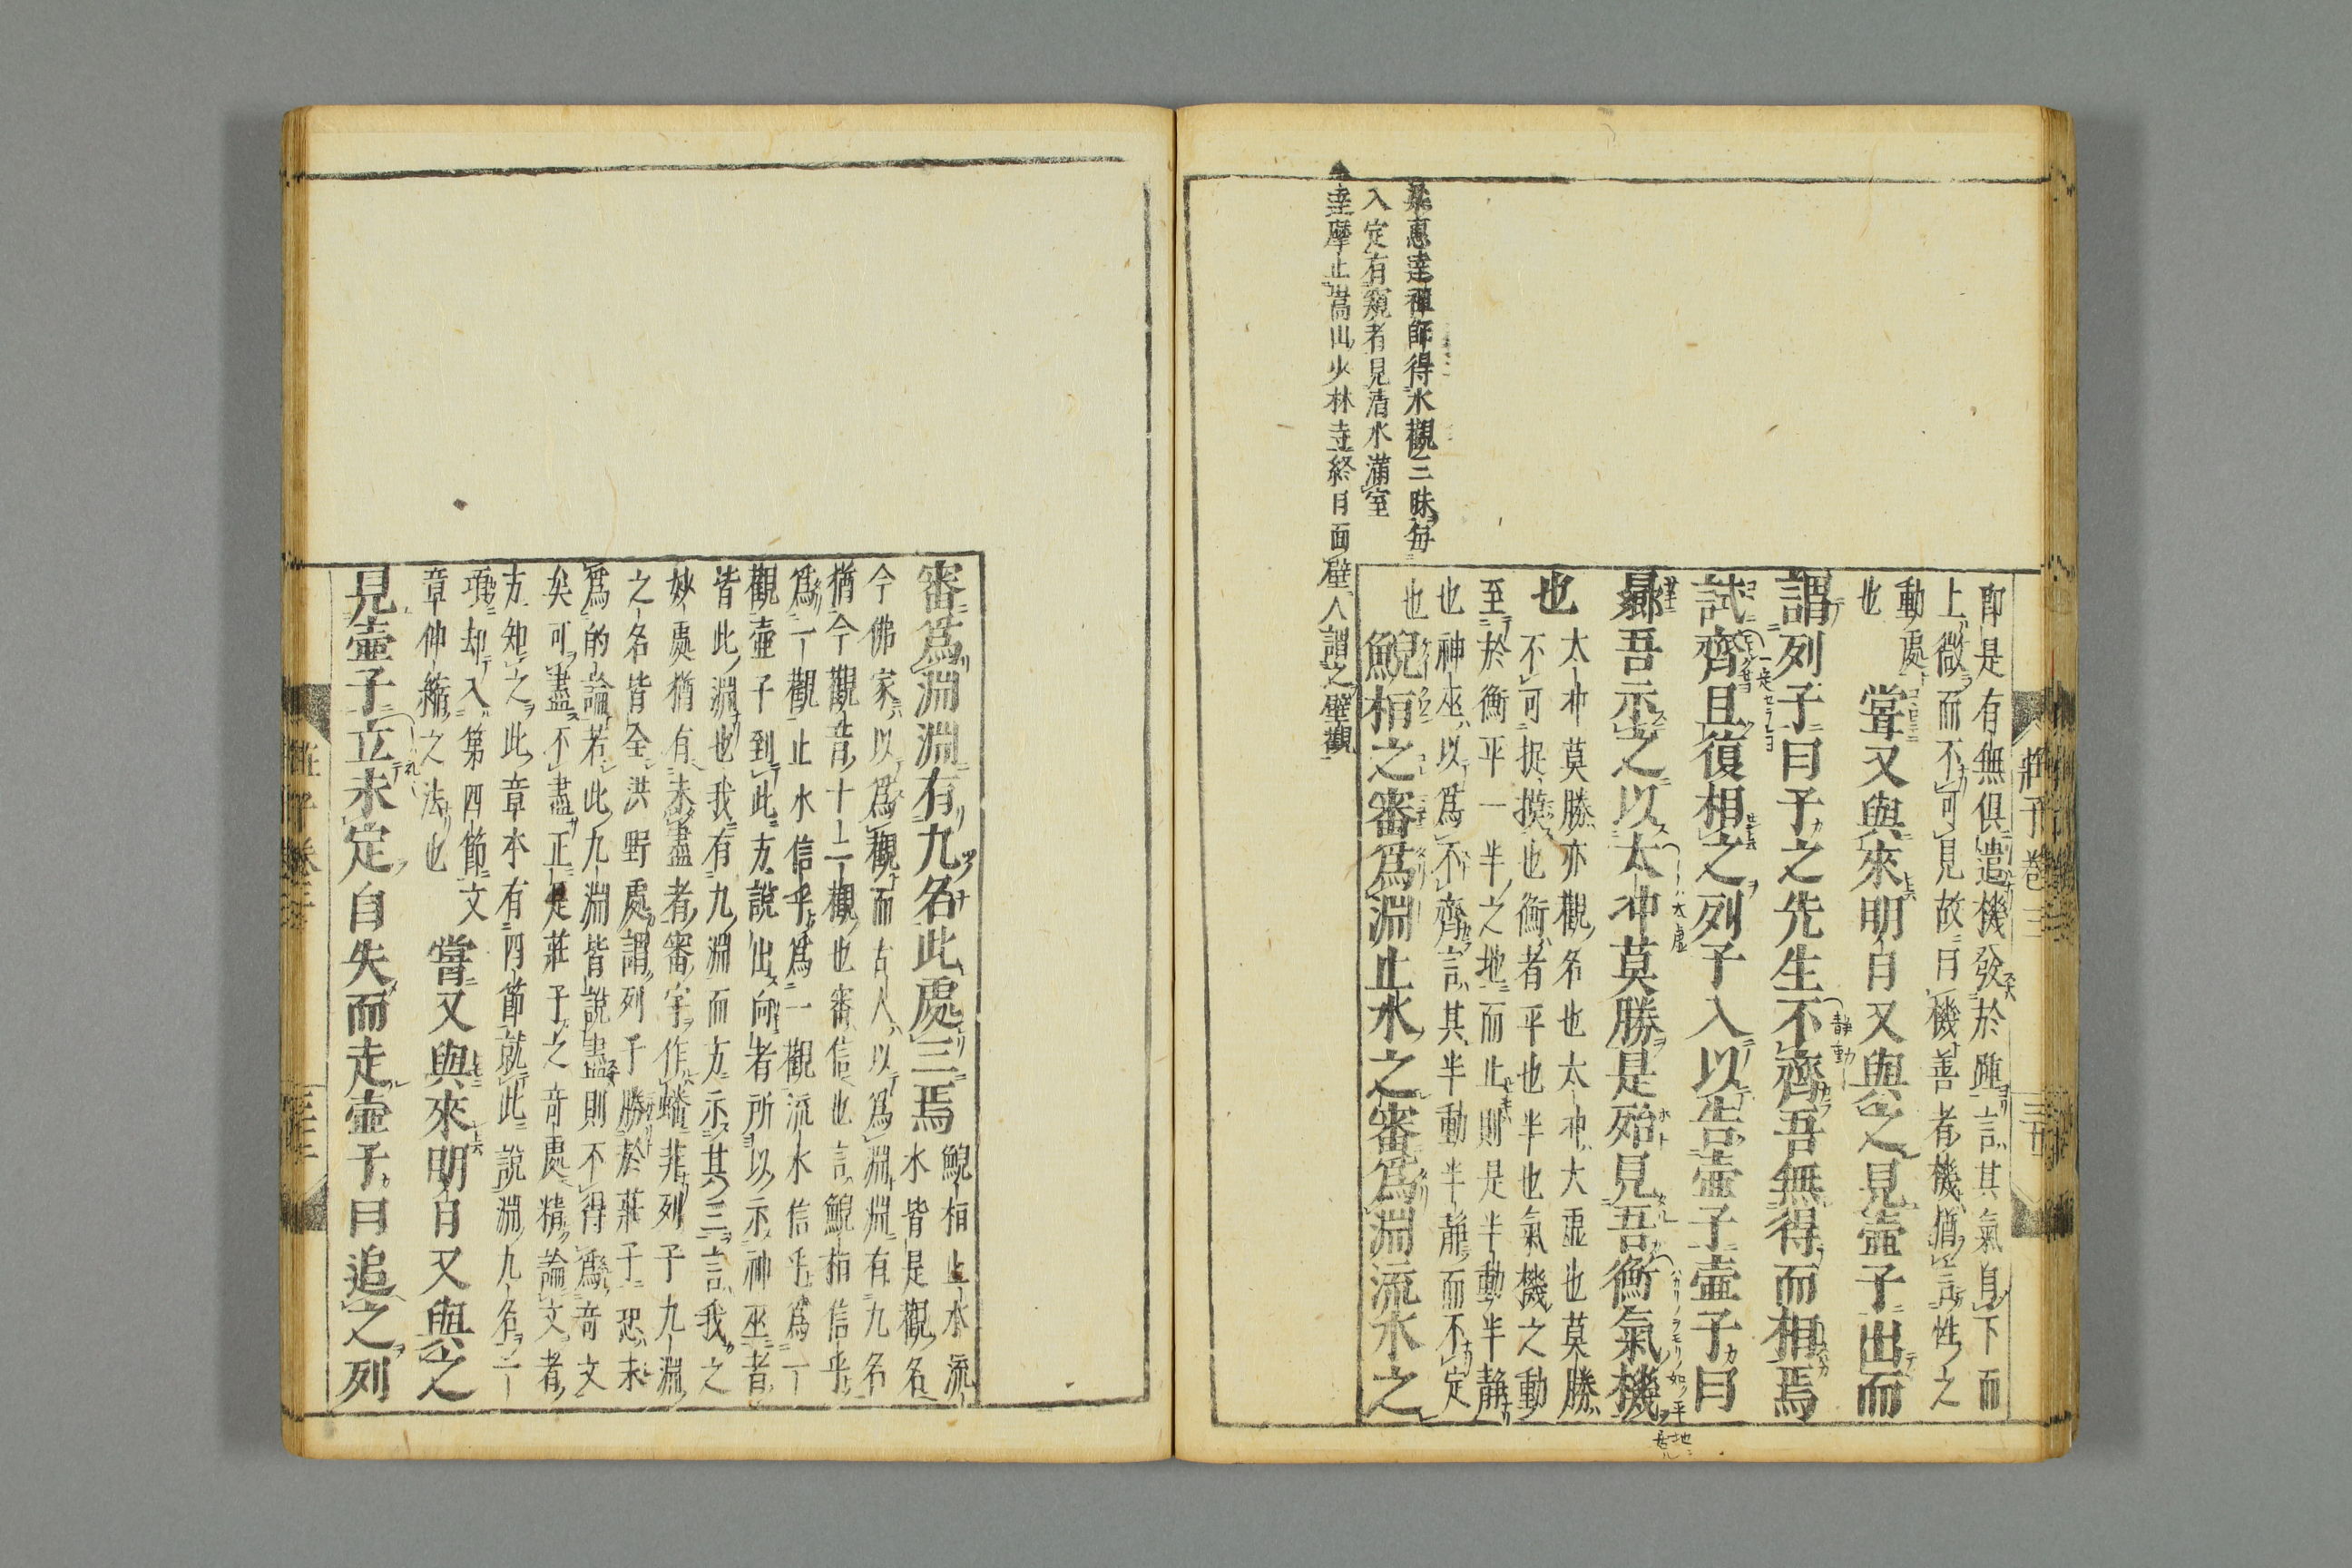 莊子卷三
三十
即是有無俱遣機發於踵言其氣自下而
上微而不可見故曰機善者機猶言性之
動處
也
嘗又與來明日又與之見壺子出而
謂列子曰子之先生不齊吾無得而相焉
試齊且復相之列子入以告壺子壺子曰
曏吾示之以太冲莫勝是殆見吾衡氣機
也
太冲莫勝亦觀名也太冲大虛也莫勝
不可捉摸也衡者平也半也氣機之動
至於衡平一半之地而止則是半動半静
也神巫以為不齊言其半動半静而不定
也
鯢桓之審為淵止水之審為淵流水之
惠達禪師得水觀三昧每
入定有窺者見清水滿室
達摩止嵩山少林寺終日面壁人謂之壁觀
審為淵淵有九名此處三焉
鯢桓止水流
水皆是觀名
今佛家以為觀而古人以為淵淵有九名
猶今觀音十二觀也審信也言鯢桓信乎
為一觀止水信乎為一觀流水信乎為一
觀壺子到此方說出向者所以示神巫者
皆此淵也我有九淵而方示其三言我之
妙處猶有未盡者審字作蟠非列子九淵
之名皆全洪野處謂列子勝於莊子恐未
為的論若此九淵皆說盡則不得為奇文
矣可盡不盡正是莊子之奇處精論文者
方知之此章本有四節就此說淵九名一
項却入第四節文
章伸縮之法也
嘗又與來明日又與之
見壺子立未定自失而走壺子曰追之列